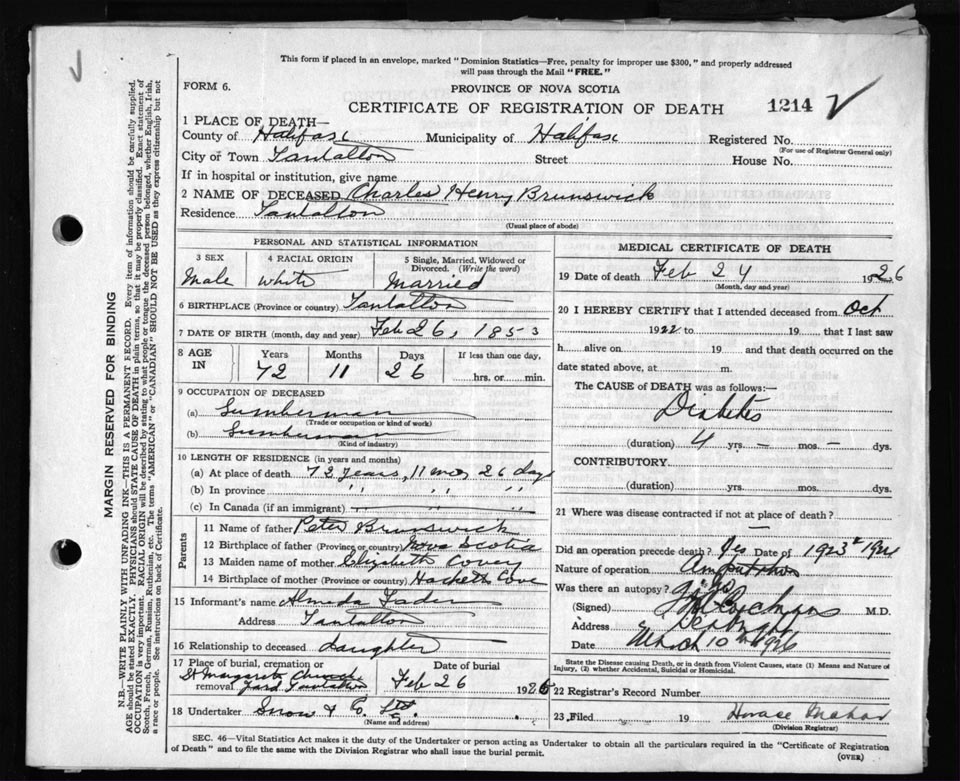 This form if placed in an envelope, marked "Dominion Statistics—Free, penalty for improper use $300," and properly addressed
will pass through the Mail "FREE."
FORM 6.
PROVINCE OF NOVA SCOTIA
CERTIFICATE OF REGISTRATION OF DEATH 1214
1 PLACE OF DEATH—
County of Halifax Municipality of Halifax Registered No.
(For use of Registrar General only)
City or Town Tantallon Street House No.
If in hospital or institution, give name
2 NAME OF DECEASED Charles Henry Brunswick
Residence Tantallon
(Usual place of abode)
PERSONAL AND STATISTICAL INFORMATION
3 SEX 4 RACIAL ORIGIN 5 Single, Married, Widowed or Divorced. (Write the word)
Male White Married
6 BIRTHPLACE (Province or country) Tantallon
7 DATE OF BIRTH (month, day and year) Feb 26, 1853
8 AGE IN Years Months Days If less than one day,
72 11 26 hrs. or min.
9 OCCUPATION OF DECEASED
(a) Lumberman
(Trade or occupation or kind of work)
(b) Lumberman
(Kind of industry)
10 LENGTH OF RESIDENCE (in years and months)
(a) At place of death 72 years, 11 mos, 26 days
(b) In province " " "
(c) In Canada (if an immigrant) " "
Parents
11 Name of father Peter Brunswick
12 Birthplace of father (Province or country) Nova Scotia
13 Maiden name of mother Elizabeth Covey
14 Birthplace of mother (Province or country) Hacketts Cove
15 Informant's name Almeda Fader
Address Tantallon
16 Relationship to deceased daughter
17 Place of burial, cremation or removal Date of burial
St Margarets Church
Yard Tantallon Feb 26 1926
18 Undertaker Snow & Co. Ltd
(Name and address)
MEDICAL CERTIFICATE OF DEATH
19 Date of death Feb 24 1926
(Month, day and year)
20 I HEREBY CERTIFY that I attended deceased from Oct
1922 to 19 that I last saw
h alive on 19 and that death occurred on the
date stated above, at m.
The CAUSE of DEATH was as follows:—
Diabetes
(duration) 4 yrs. — mos. — dys.
CONTRIBUTORY.
(duration) yrs. mos. dys.
21 Where was disease contracted if not at place of death?
—
Did an operation precede death? Yes Date of 1923
Nature of operation Amputation
Was there an autopsy?
(Signed) M.D.
Address
Date March 10th 1926
State the Disease causing Death, or in death from Violent Causes, state (1) Means and Nature of
Injury, (2) whether Accidental, Suicidal or Homicidal.
22 Registrar's Record Number
23 Filed 19 Horace
(Division Registrar)
SEC. 46—Vital Statistics Act makes it the duty of the Undertaker or person acting as Undertaker to obtain all the particulars required in the "Certificate of Registration
of Death" and to file the same with the Division Registrar who shall issue the burial permit.
(OVER)
MARGIN RESERVED FOR BINDING
N.B.—WRITE PLAINLY WITH UNFADING INK—THIS IS A PERMANENT RECORD. Every item of information should be carefully supplied.
AGE should be stated EXACTLY. PHYSICIANS should STATE CAUSE OF DEATH in plain terms, so that it may be properly classified. Exact statement of
OCCUPATION is very important. RACIAL ORIGIN will be described by stating to what people or tongue the deceased person belonged, whether English, Irish,
Scotch, French, German, Russian, Ruthenian, etc. The terms "AMERICAN" or "CANADIAN" SHOULD NOT BE USED as they express citizenship but not
a race or people. See instructions on back of Certificate.